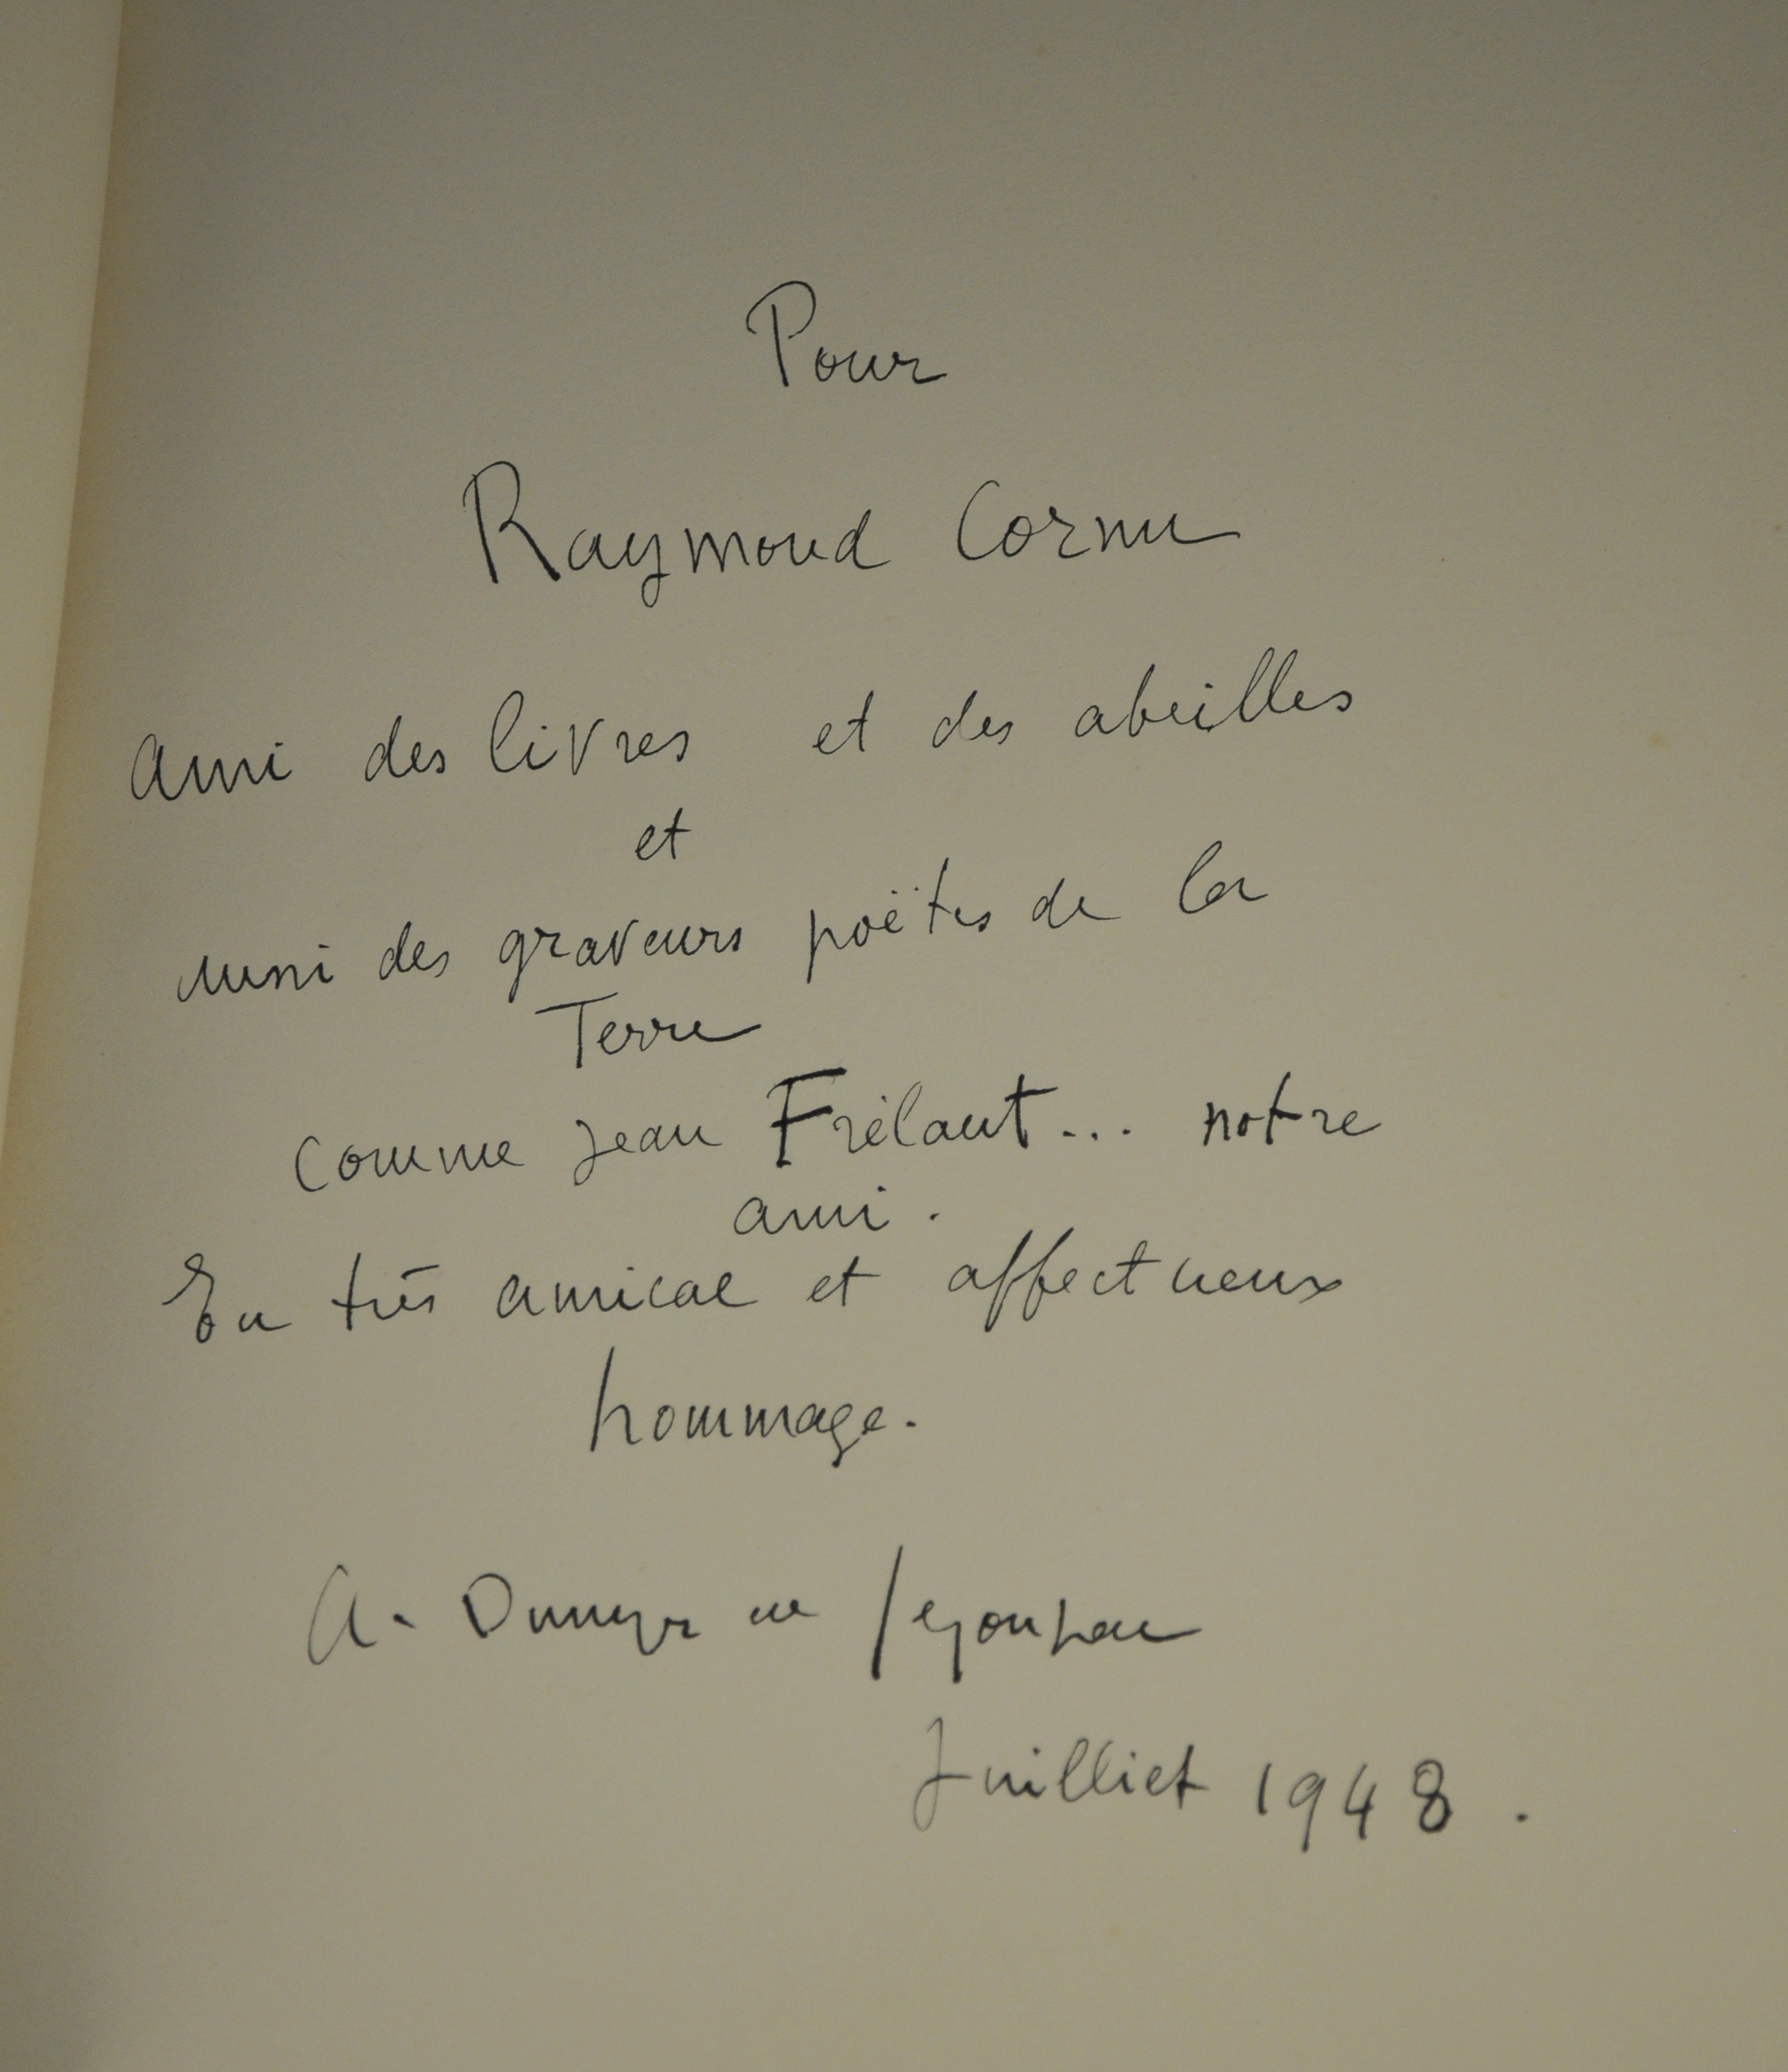 Pour
Raymond Cornu
Ami des livres et des abeilles
et
aussi des graveurs poëtes de la
Terre
comme Jean Frélaut... notre
ami.
En très amical et affectueux
hommage.
A. Dunoyer de Segonzac
Juilliet 1948.